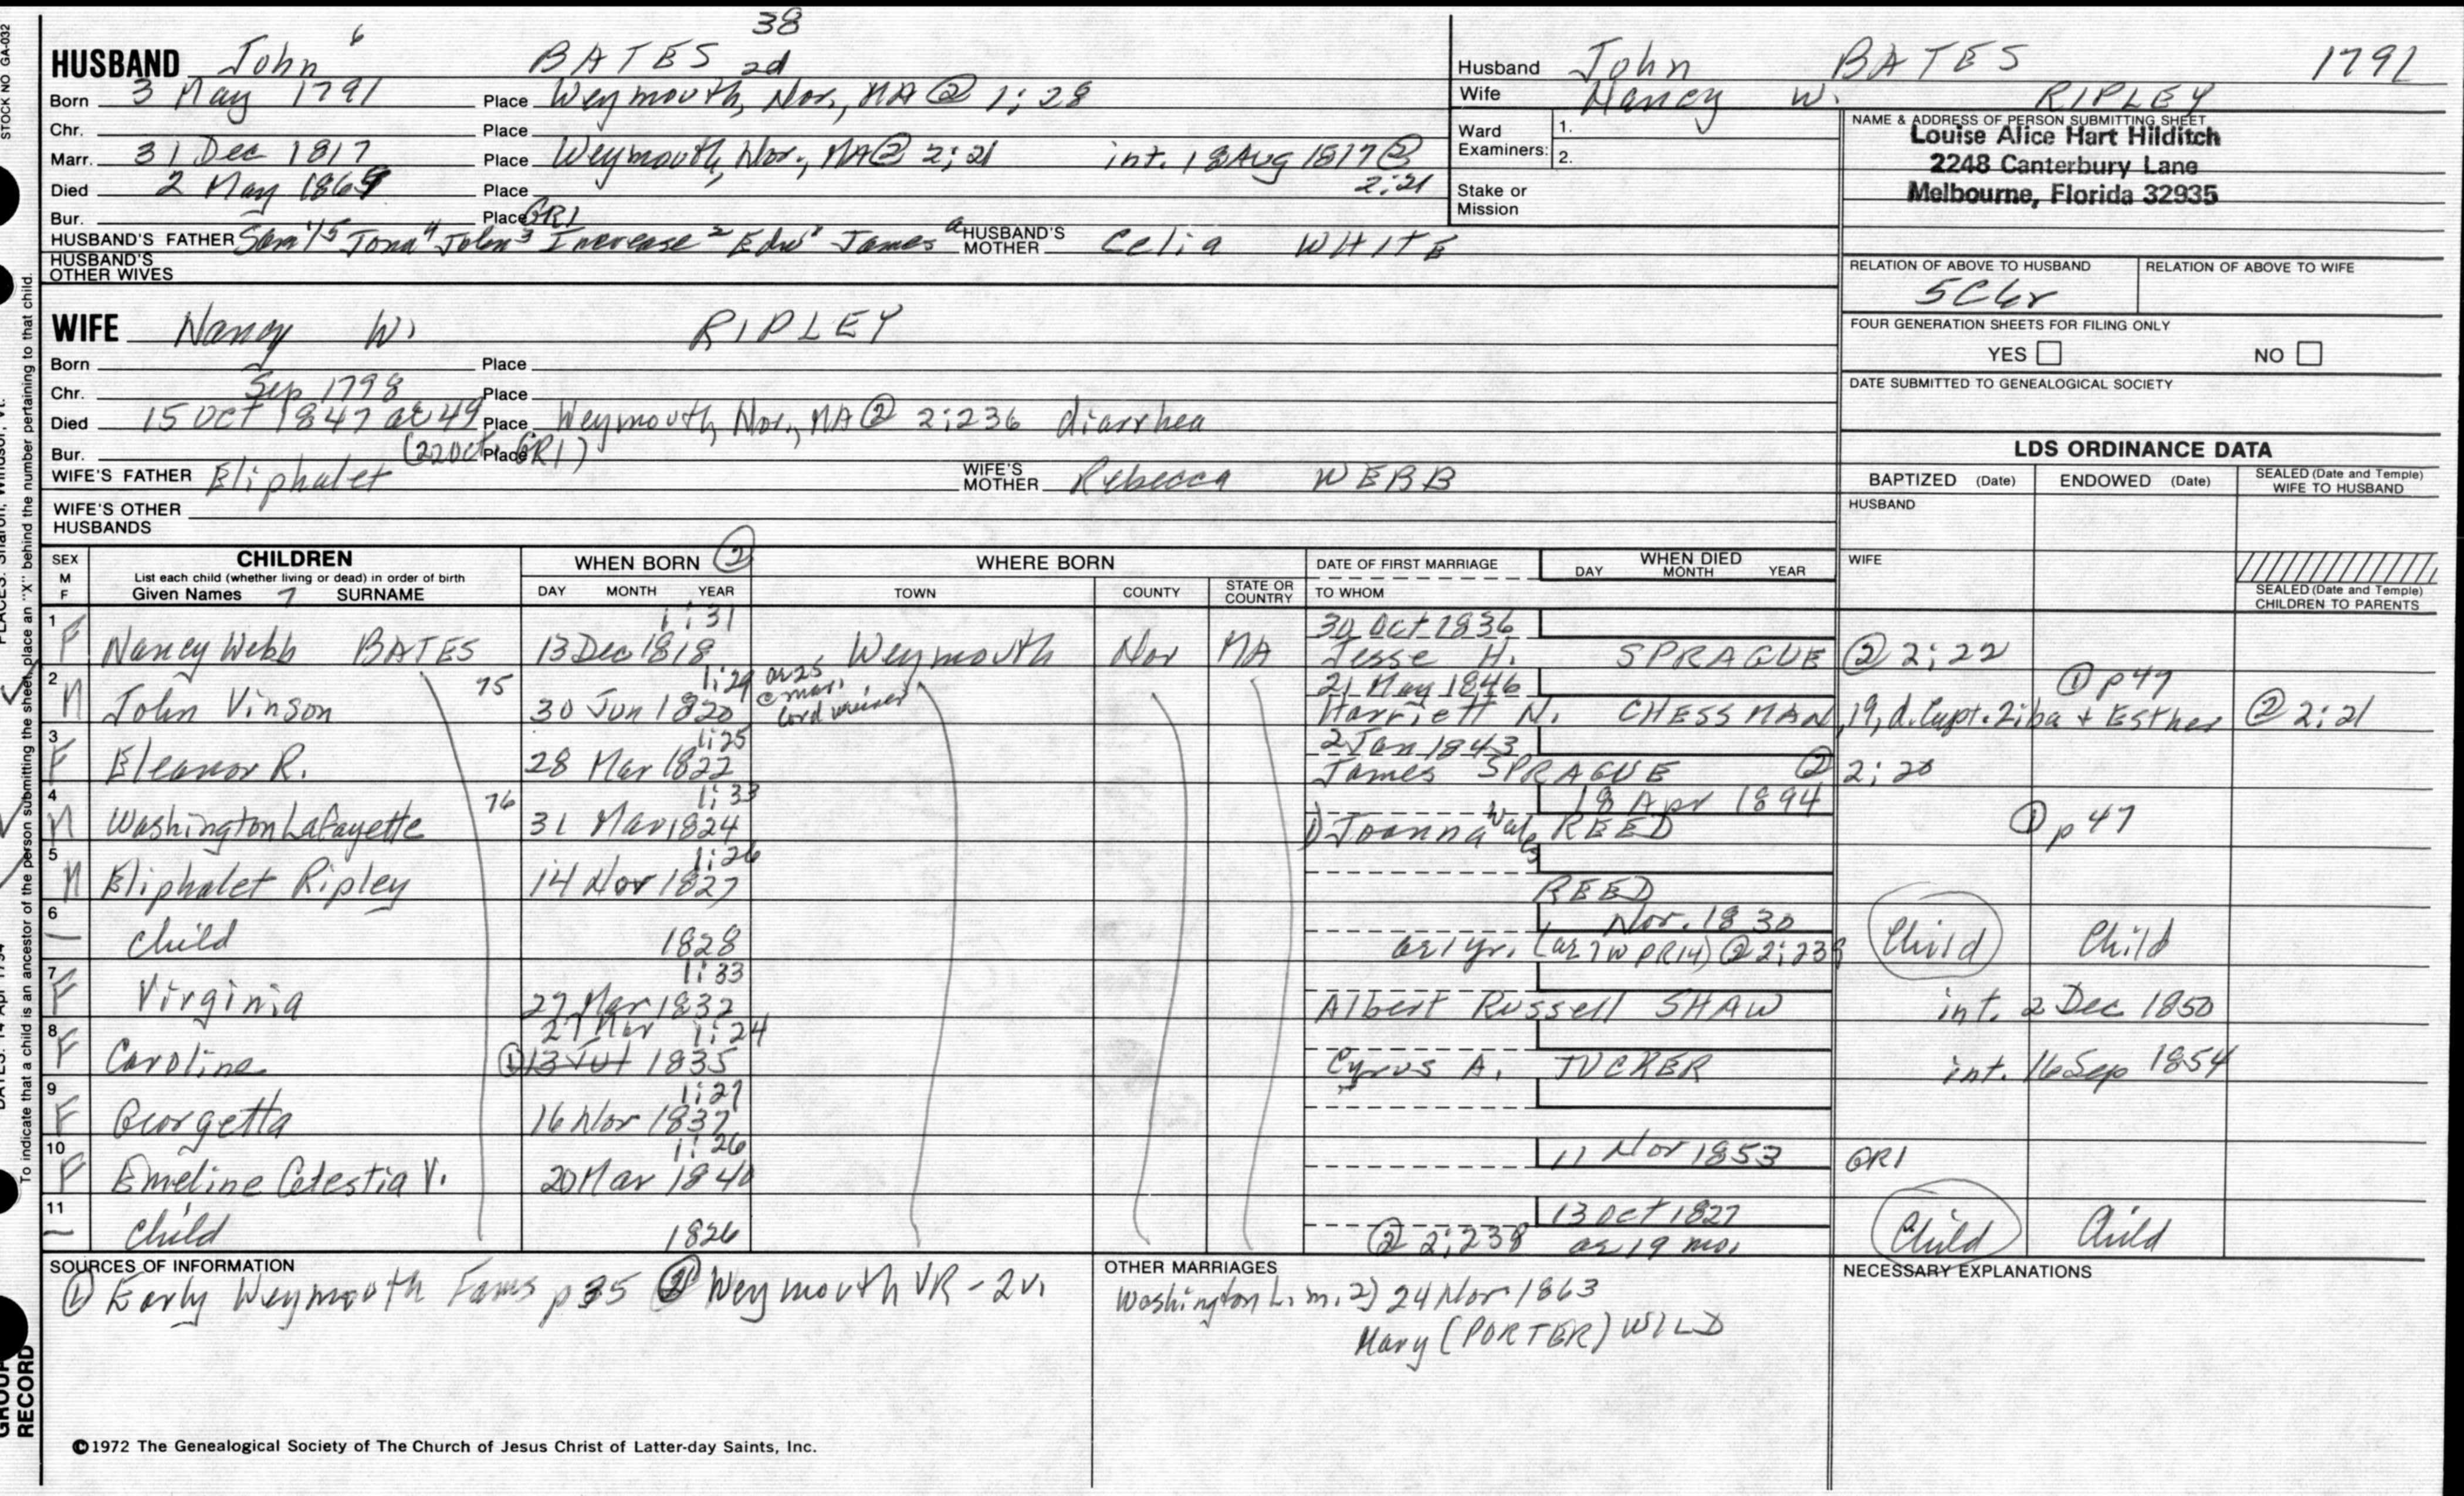 38
HUSBAND John 6 BATES 2d
Born 3 May 1791 Place Weymouth, Nor., MA @ 1:28
Chr. Place
Marr. 31 Dec 1817 Place Weymouth, Nor., MA ② 2:21 int. 18 Aug 1817 ② 2:21
Died 2 May 1869 Place
Bur. Place GR1
HUSBAND'S FATHER Sam'l 5 Jona 4 John 3 Increase 2 Edw 1 James a HUSBAND'S MOTHER Celia WHITE
HUSBAND'S OTHER WIVES
Husband John BATES 1791
Wife Nancy W. RIPLEY
Ward Examiners: 1. 2.
Stake or Mission
NAME & ADDRESS OF PERSON SUBMITTING SHEET
Louise Alice Hart Hilditch
2248 Canterbury Lane
Melbourne, Florida 32935
RELATION OF ABOVE TO HUSBAND RELATION OF ABOVE TO WIFE
5C6r
FOUR GENERATION SHEETS FOR FILING ONLY
YES NO
DATE SUBMITTED TO GENEALOGICAL SOCIETY
WIFE Nancy W. RIPLEY
Born Place
Chr. Sep 1798 Place
Died 15 Oct 1847 ae 49 Place Weymouth, Nor., MA ② 2:236 diarrhea
Bur. (22 Oct, GR1) Place
WIFE'S FATHER Eliphalet WIFE'S MOTHER Rebecca WEBB
WIFE'S OTHER HUSBANDS
LDS ORDINANCE DATA
BAPTIZED (Date) ENDOWED (Date) SEALED (Date and Temple) WIFE TO HUSBAND
HUSBAND
WIFE
SEALED (Date and Temple) CHILDREN TO PARENTS
SEX M F CHILDREN WHEN BORN ② WHERE BORN DATE OF FIRST MARRIAGE WHEN DIED
List each child (whether living or dead) in order of birth DAY MONTH YEAR
Given Names 7 SURNAME DAY MONTH YEAR TOWN COUNTY STATE OR COUNTRY TO WHOM
1 1:31 30 Oct 1836
F Nancy Webb BATES 13 Dec 1818 Weymouth Nor MA Jesse H. SPRAGUE ② 2:22
2 75 1:29 or 25 @ mar. 21 May 1846 ① p 47
M John Vinson 30 Jun 1820 Harriett N. CHESSMAN, 19, d. Capt. Ziba + Esther ② 2:21
3 1:25 2 Jan 1843
F Eleanor R. 28 Mar 1822 James SPRAGUE ② 2:20
4 76 1:33 18 Apr 1894
M Washington Lafayette 31 Mar 1824 1) Joanna Wales REED ① p 47
5 1:26
M Eliphalet Ripley 14 Nov 1827 REED
6 Nov. 1830
— child 1828 ae 1 yr. (ae 7 w PR14) ② 2:238 Child Child
7 1:33
F Virginia 27 Mar 1832 Albert Russell SHAW int. 2 Dec 1850
8 27 Mar 1:24
F Caroline ① 13 Jul 1835 Cyrus A. TUCKER int. 16 Sep 1854
9 1:27
F Georgetta 16 Nov 1837
10 1:26 11 Nov 1853 GR1
F Emeline Celestia V. 20 Mar 1840
11 13 Oct 1827
— child 1826 ② 2:238 ae 19 mo. Child Child
SOURCES OF INFORMATION
① Early Weymouth Fams p 35 ② Weymouth VR - 2v.
OTHER MARRIAGES
Washington L. m. 2) 24 Nov 1863
Mary (PORTER) WILD
NECESSARY EXPLANATIONS
©1972 The Genealogical Society of The Church of Jesus Christ of Latter-day Saints, Inc.
STOCK NO GA-032
To indicate that a child is an ancestor of the person submitting the sheet, place an "X" behind the number pertaining to that child.
PLACES: Sharon, Windsor, Vt.
DATES: 14 Apr 1794
GROUP RECORD